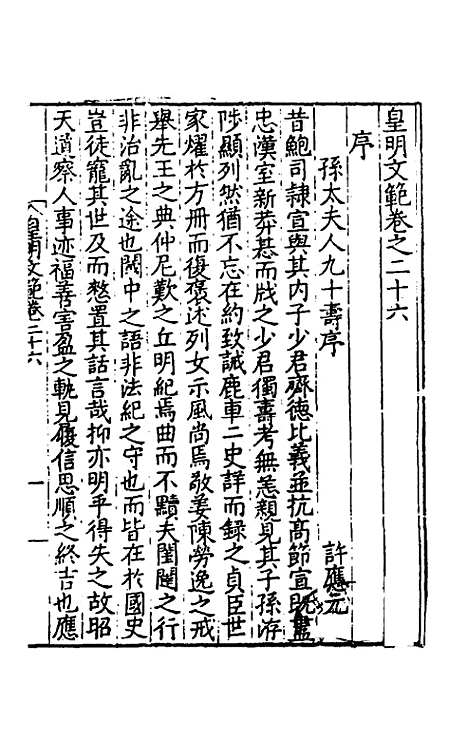 皇明文範卷之二十六
序
孫太夫人九十壽序
許應元
昔鮑司隸宣與其内子少君齊德比義並抗高節宣既盡
忠漢室新莽惎而戕之少君獨壽考無恙親見其子孫洊
陟顯列然猶不忘在約致誡鹿車二史詳而錄之貞臣世
家燿於方册而復褒述列女示風尚焉敬姜陳勞逸之戒
舉先王之典仲尼歎之丘明紀焉曲而不黷夫閨闥之行
非治亂之途也閫中之語非法紀之守也而皆在於國史
豈徒寵其世及而憗置其話言哉抑亦明乎得失之故昭
天道察人事迹福善害盈之軌見履信思順之終吉也應
皇明文範卷二十六
一